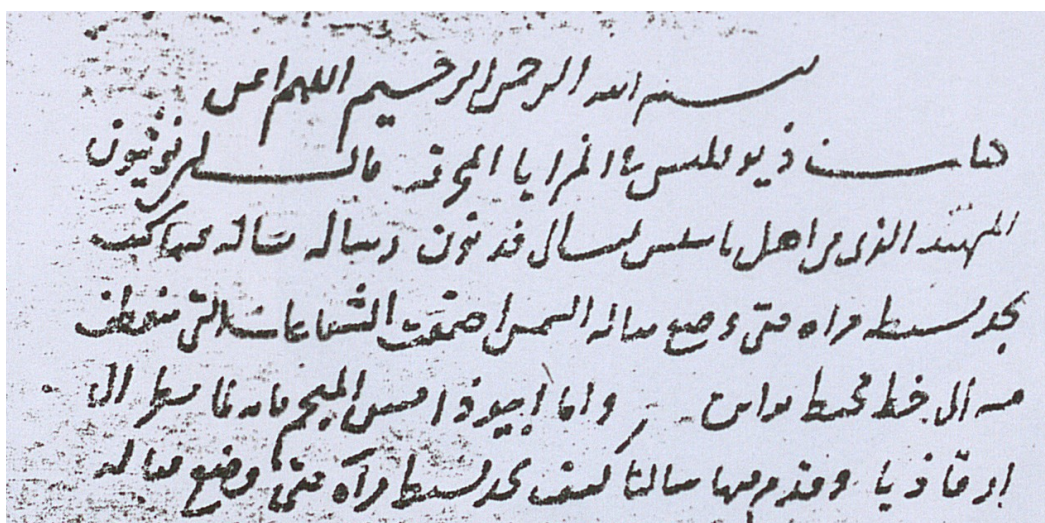 بسم الله الرحمن الرحيم اللهم اعن
كتاب ذيوقليس في المرايا المحرقة قال ان فوثيون
المهندس الذي من اهل ثاسس ارسل الى قونون رسالة سأله فيها كيف
نجد بسيط مرآة متى وضع قبالة الشمس اجتمعت الشعاعات التي تنعطف
منه الى خط محيط بدائرة واما ايبوذامس المنجم فانه لما صار الى
ارقاذيا وقدم علينا سألنا كيف نجد بسيط مرآة متى وضع قبالة